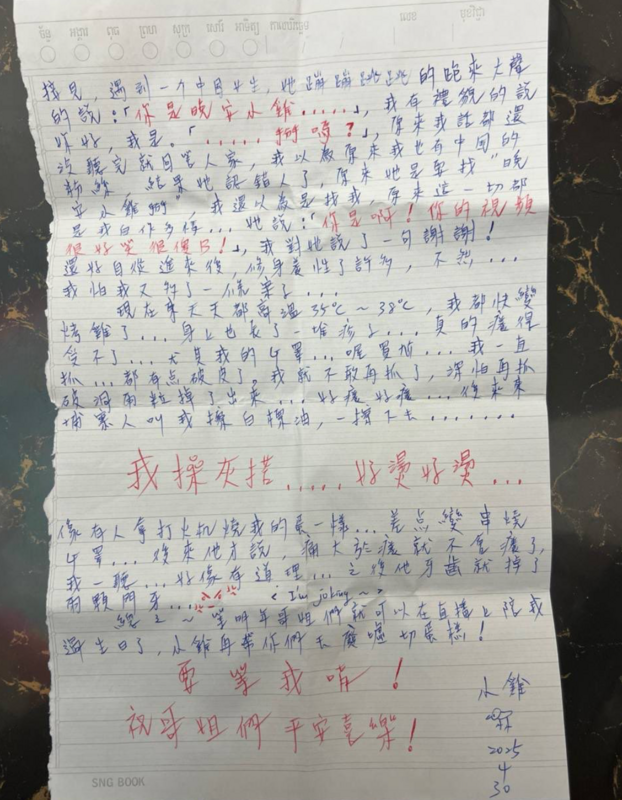 ច័ន្ទ អង្គារ ពុធ ព្រហ សុក្រ សៅរ៍ អាទិត្យ កាលបរិច្ឆេទ លេខ មុខវិជ្ជា
接見，遇到一个中国女生，她蹦蹦跳跳的跑來大聲
的說：「你是晚安小雞.....」，我有禮貌的說
你好，我是。「.....狗嗎？」，原來我話都還
沒聽完就回答人家，我以為原來我也有中国的
粉絲，結果她認錯人了，原來她是要找"晚
安小雞狗"，我還以為是找我，原來這一切都
是我自作多情...她說：「你是啊！你的視頻
很好笑很傻B！」，我對她說了一句謝謝！
還好自從進來後，修身養性了許多，不然...
我怕我又行了一條案了....
現在每天天都高溫35℃～38℃，我都快變
烤雞了...身上也長了一堆疹子...真的癢得
受不了...尤其我的ㄐ罩...喔買尬...我一直
抓...都有点破皮了，我就不敢再抓了，深怕再抓
破洞兩粒掉了出來...好癢好癢...後來柬
埔寨人叫我擦白擦油，一擦下去.......
我操灰搭.....好燙好燙...
像有人拿打火机燒我的蛋一樣...差点變串燒
ㄐ罩...後來他才說，痛大於癢就不會癢了，
我一聽...好像有道理...之後他牙齒就掉了
兩顆門牙...哈哈哈 < I'm joking ~ >
總之～等明年哥姐們就可以在直播上陪我
過生日了，小雞再幫你們去廣噓切蛋糕！
要等我唷！
祝哥姐們平安喜樂！
小雞
2025
4
30
SNG BOOK